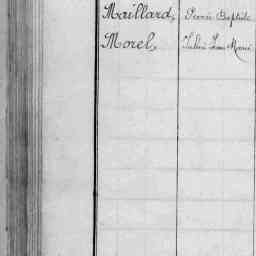 Maillard, Pierre Baptiste
Morel, Jules Jean Marie